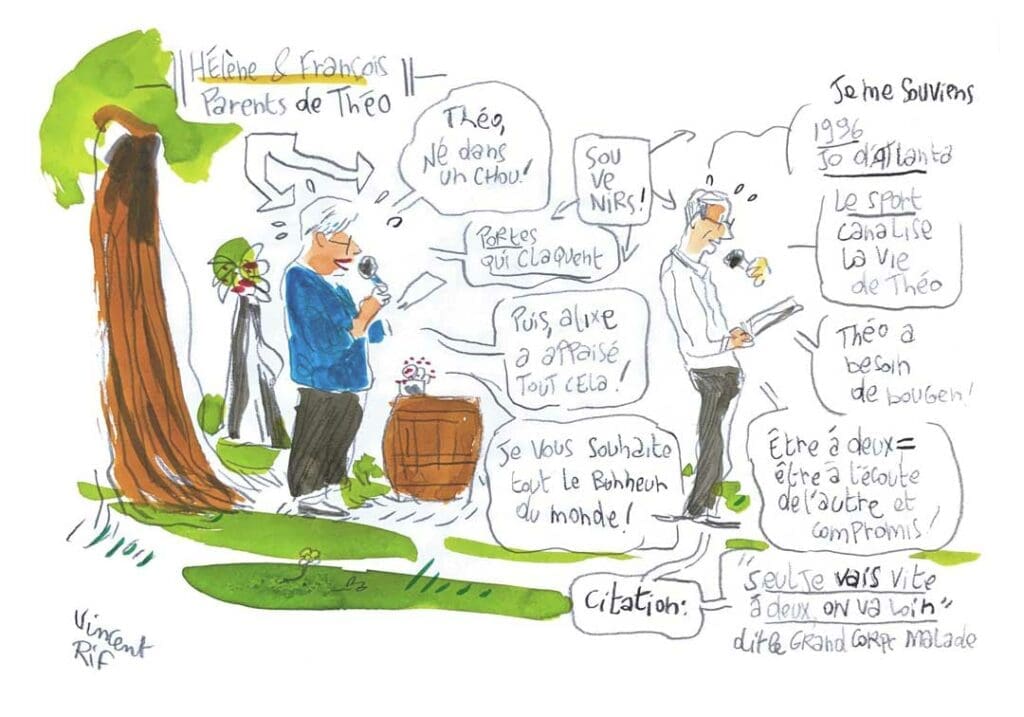 Hélène & François
Parents de Théo
Théo,
Né dans
un chou!
Sou
ve
NiRs!
Portes
qui claquent
Puis, alixe
a appaisé
tout cela!
Je vous souhaite
tout le Bonheur
du monde!
Je me souviens
1996
Jo d'Atlanta
Le sport
canalise
la vie
de Théo
Théo a
besoin
de bouger!
Être à deux =
être à l'écoute
de l'autre et
compromis!
Citation:
"Seul je vais vite
à deux, on va loin"
dit le Grand Corps Malade
Vincent
Rif